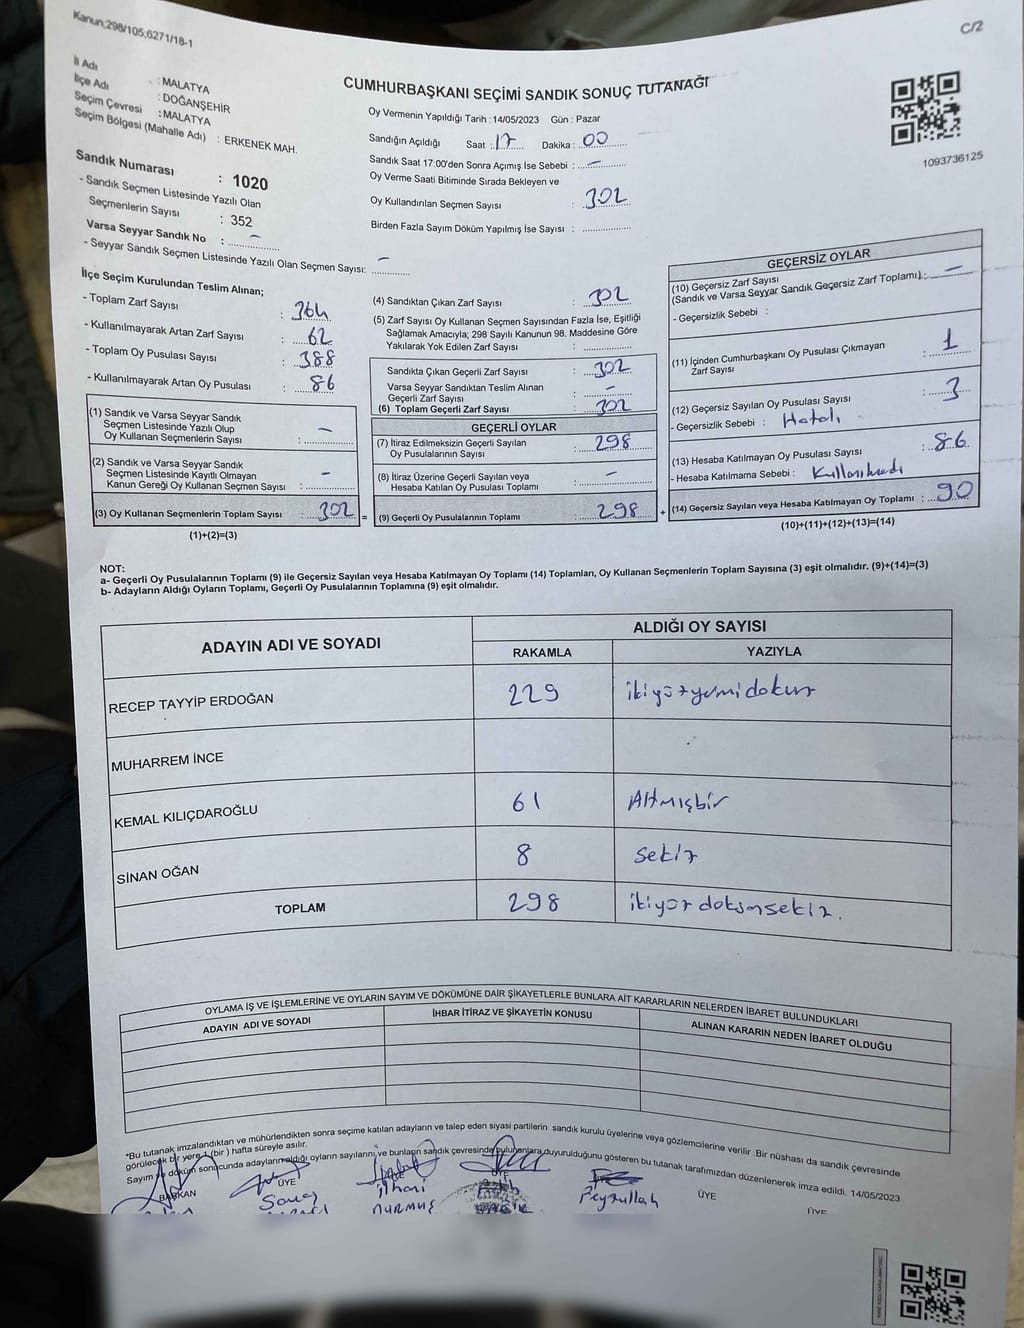 Kanun;298/105;6271/18-1
C/2
İl Adı : MALATYA
İlçe Adı : DOĞANŞEHİR
Seçim Çevresi : MALATYA
Seçim Bölgesi (Mahalle Adı) : ERKENEK MAH.
Sandık Numarası : 1020
- Sandık Seçmen Listesinde Yazılı Olan
Seçmenlerin Sayısı : 352
Varsa Seyyar Sandık No : –
- Seyyar Sandık Seçmen Listesinde Yazılı Olan Seçmen Sayısı: –
CUMHURBAŞKANI SEÇİMİ SANDIK SONUÇ TUTANAĞI
Oy Vermenin Yapıldığı Tarih : 14/05/2023 Gün : Pazar
Sandığın Açıldığı Saat : 17 Dakika : 00
Sandık Saat 17:00'den Sonra Açımış İse Sebebi : –
Oy Verme Saati Bitiminde Sırada Bekleyen ve
Oy Kullandırılan Seçmen Sayısı : 302
Birden Fazla Sayım Döküm Yapılmış İse Sayısı :
1093736125
İlçe Seçim Kurulundan Teslim Alınan;
- Toplam Zarf Sayısı : 364
- Kullanılmayarak Artan Zarf Sayısı : 62
- Toplam Oy Pusulası Sayısı : 388
- Kullanılmayarak Artan Oy Pusulası : 86
(1) Sandık ve Varsa Seyyar Sandık
Seçmen Listesinde Yazılı Olup
Oy Kullanan Seçmenlerin Sayısı : –
(2) Sandık ve Varsa Seyyar Sandık
Seçmen Listesinde Kayıtlı Olmayan
Kanun Gereği Oy Kullanan Seçmen Sayısı : –
(3) Oy Kullanan Seçmenlerin Toplam Sayısı : 302 =
(1)+(2)=(3)
(4) Sandıktan Çıkan Zarf Sayısı : 302
(5) Zarf Sayısı Oy Kullanan Seçmen Sayısından Fazla İse, Eşitliği
Sağlamak Amacıyla; 298 Sayılı Kanunun 98. Maddesine Göre
Yakılarak Yok Edilen Zarf Sayısı :
Sandıkta Çıkan Geçerli Zarf Sayısı : 302
Varsa Seyyar Sandıktan Teslim Alınan
Geçerli Zarf Sayısı : –
(6) Toplam Geçerli Zarf Sayısı : 302
GEÇERLİ OYLAR
(7) İtiraz Edilmeksizin Geçerli Sayılan
Oy Pusulalarının Sayısı : 298
(8) İtiraz Üzerine Geçerli Sayılan veya
Hesaba Katılan Oy Pusulası Toplamı : –
(9) Geçerli Oy Pusulalarının Toplamı : 298 +
GEÇERSİZ OYLAR
(10) Geçersiz Zarf Sayısı
(Sandık ve Varsa Seyyar Sandık Geçersiz Zarf Toplamı) : –
- Geçersizlik Sebebi :
(11) İçinden Cumhurbaşkanı Oy Pusulası Çıkmayan
Zarf Sayısı : 1
(12) Geçersiz Sayılan Oy Pusulası Sayısı : 3
- Geçersizlik Sebebi : Hatalı
(13) Hesaba Katılmayan Oy Pusulası Sayısı : 86
- Hesaba Katılmama Sebebi : Kullanılmadı
(14) Geçersiz Sayılan veya Hesaba Katılmayan Oy Toplamı : 90
(10)+(11)+(12)+(13)=(14)
NOT:
a- Geçerli Oy Pusulalarının Toplamı (9) ile Geçersiz Sayılan veya Hesaba Katılmayan Oy Toplamı (14) Toplamları, Oy Kullanan Seçmenlerin Toplam Sayısına (3) eşit olmalıdır. (9)+(14)=(3)
b- Adayların Aldığı Oyların Toplamı, Geçerli Oy Pusulalarının Toplamına (9) eşit olmalıdır.
ADAYIN ADI VE SOYADI ALDIĞI OY SAYISI
RAKAMLA YAZIYLA
RECEP TAYYİP ERDOĞAN 229 ikiyüzyirmidokuz
MUHARREM İNCE
KEMAL KILIÇDAROĞLU 61 Altmışbir
SİNAN OĞAN 8 sekiz
TOPLAM 298 ikiyüzdoksansekiz.
OYLAMA İŞ VE İŞLEMLERİNE VE OYLARIN SAYIM VE DÖKÜMÜNE DAİR ŞİKAYETLERLE BUNLARA AİT KARARLARIN NELERDEN İBARET BULUNDUKLARI
ADAYIN ADI VE SOYADI İHBAR İTİRAZ VE ŞİKAYETİN KONUSU ALINAN KARARIN NEDEN İBARET OLDUĞU
*Bu tutanak imzalandıktan ve mühürlendikten sonra seçime katılan adayların ve talep eden siyasi partilerin sandık kurulu üyelerine veya gözlemcilerine verilir. Bir nüshası da sandık çevresinde
görülecek bir yere 1 (bir) hafta süreyle asılır.
Sayım ve döküm sonucunda adayların aldığı oyların sayılarını ve bunların sandık çevresinde bulunanlara duyurulduğunu gösteren bu tutanak tarafımızdan düzenlenerek imza edildi. 14/05/2023
BAŞKAN ÜYE ÜYE ÜYE ÜYE
ilhani Beyzullah
DURMUŞ